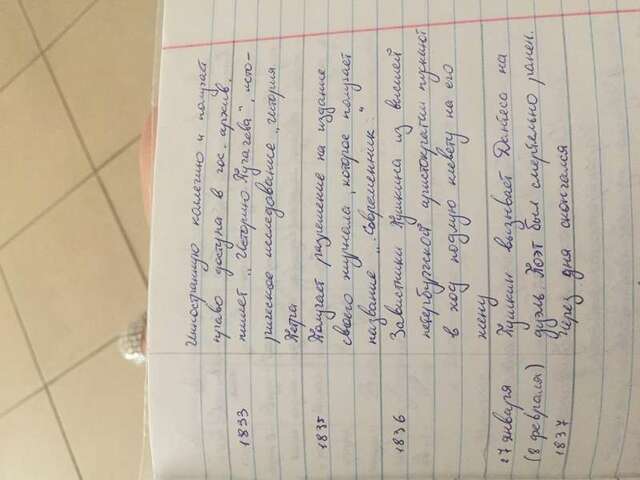 Инностранную коллегию и получает
право доступа в гос. архив.
1833 пишет „Историю Пугачева", исто-
рическое исследование „история
Петра
1835 Получает разрешение на издание
своего журнала, которое получает
название „Современник."
1836 Завистники Пушкина из высшей
петербургской аристократии пускают
в ход подлую клевету на его
жену
27 января Пушкин вызывает Дантеса на
(8 февраля) дуэль. Поэт был смертельно ранен.
1837 Через дня скончался